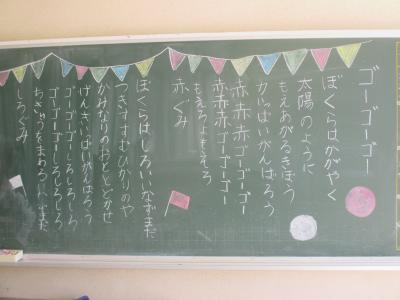 ゴーゴーゴー
ぼくらはかがやく
太陽のように
もえあがるきぼう
力いっぱいがんばろう
赤赤赤ゴーゴーゴー
赤赤赤ゴーゴーゴー
もえろよもえろ
赤ぐみ
ぼくらはしろいいなずまだ
つきすすむひかりのや
かみなりのおとどどろかせ
げんきいっぱいがんばろう
ゴーゴーゴーしろしろしろ
ゴーゴーゴーしろしろしろ
しろぐみ